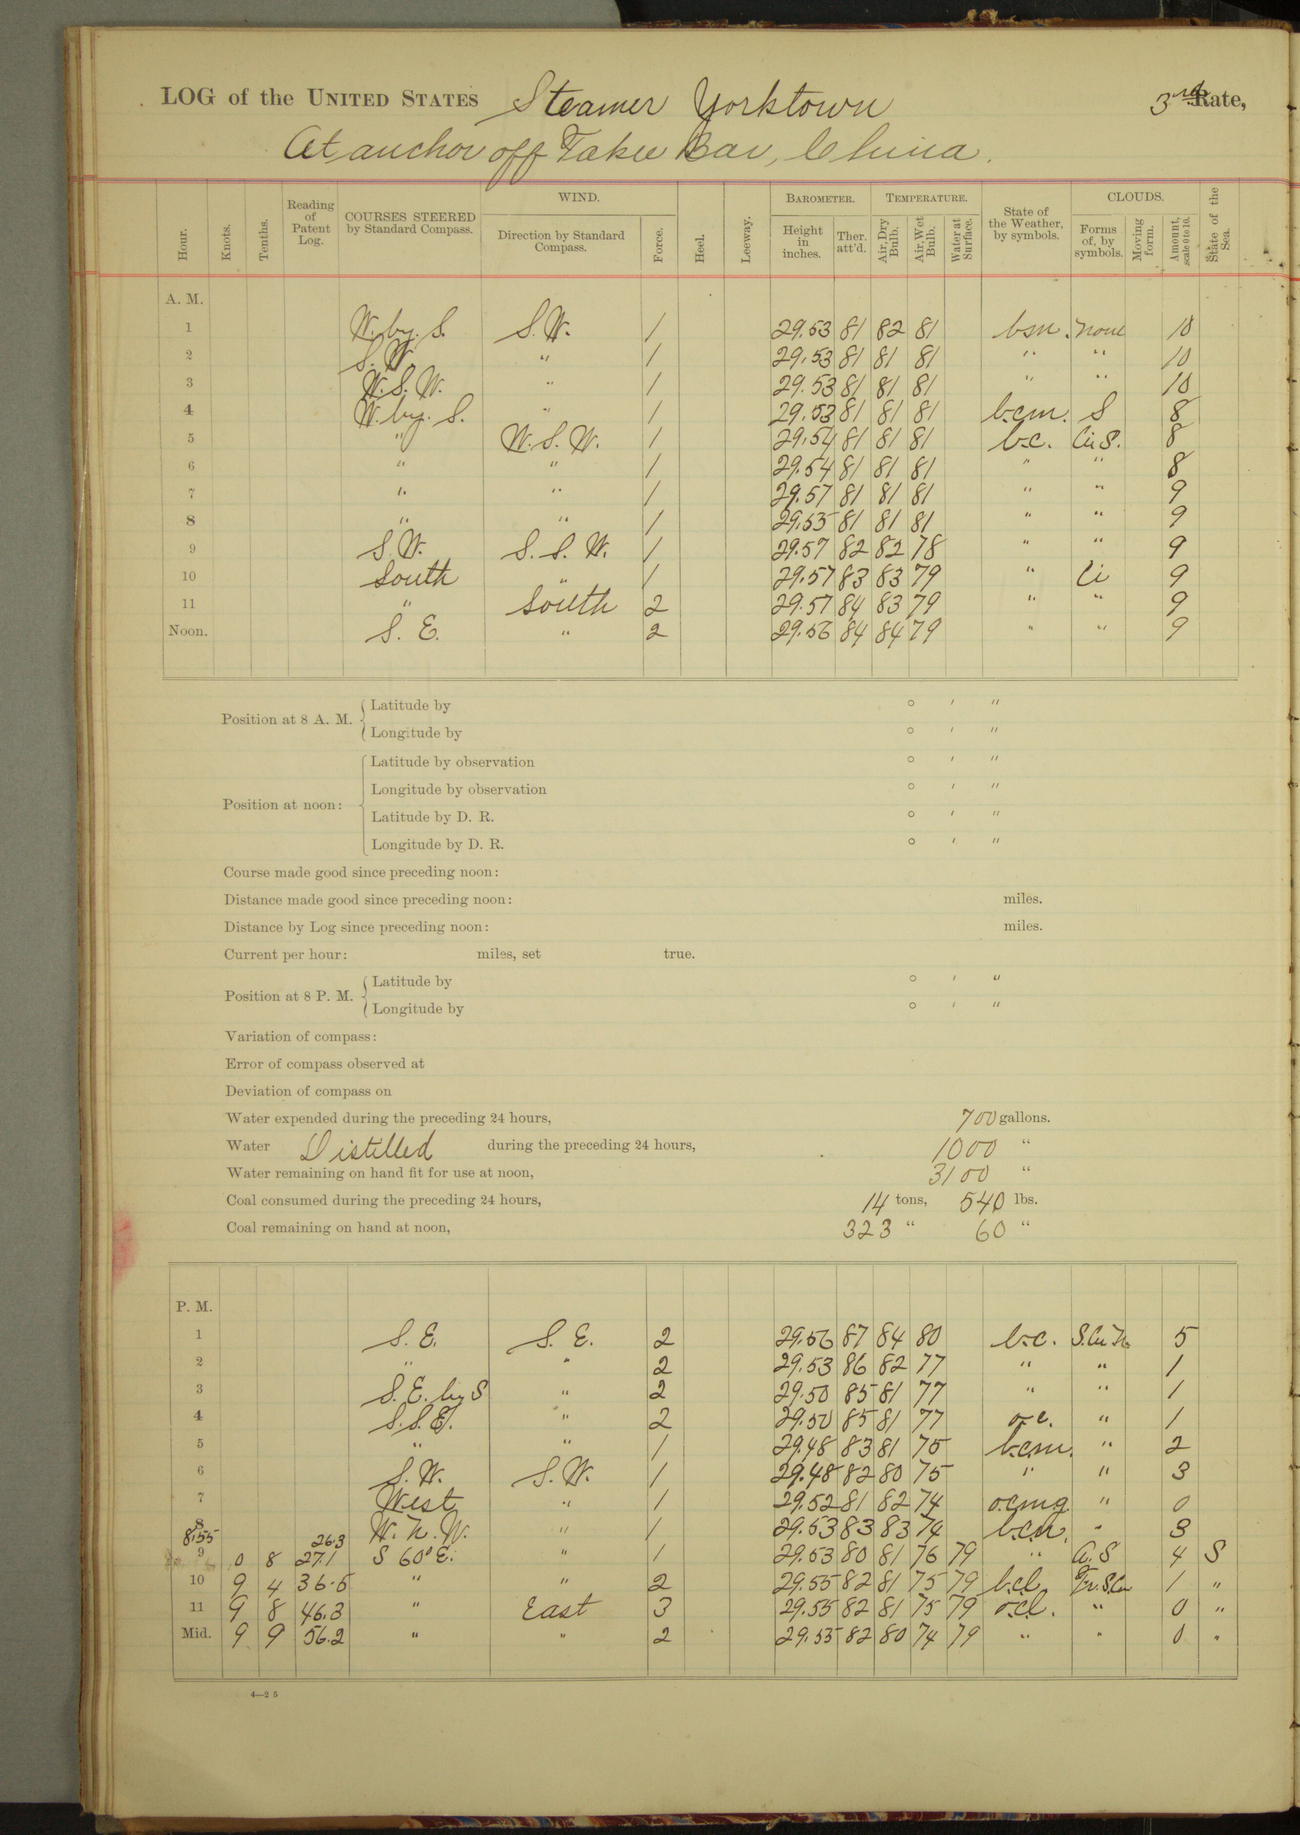 LOG of the UNITED STATES Steamer Yorktown 3rd Rate,
At anchor off Taku Bar, China.
Hour. Knots. Tenths. Reading of Patent Log. COURSES STEERED by Standard Compass. WIND. Direction by Standard Compass. Force. Heel. Leeway. BAROMETER. Height in inches. Ther. att'd. TEMPERATURE. Air, Dry Bulb. Air, Wet Bulb. Water at Surface. State of the Weather, by symbols. CLOUDS. Forms of, by symbols. Moving form. Amount, scale 0 to 10. State of the Sea.
A. M.
1 W. by. S. S. W. 1 29.53 81 82 81 bsm. none 10
2 S. W. " 1 29.53 81 81 81 " " 10
3 W. S. W. " 1 29.53 81 81 81 " " 10
4 W. by. S. " 1 29.53 81 81 81 b.c.m. S 8
5 " W. S. W. 1 29.54 81 81 81 b.c. Cir S. 8
6 " " 1 29.54 81 81 81 " " 8
7 " " 1 29.57 81 81 81 " " 9
8 " " 1 29.55 81 81 81 " " 9
9 S. W. S. S. W. 1 29.57 82 82 78 " " 9
10 South " 1 29.57 83 83 79 " Ci 9
11 " South 2 29.57 84 83 79 " " 9
Noon. S. E. " 2 29.56 84 84 79 " " 9
Position at 8 A. M. { Latitude by ° ′ ″
Longitude by ° ′ ″
Position at noon: { Latitude by observation ° ′ ″
Longitude by observation ° ′ ″
Latitude by D. R. ° ′ ″
Longitude by D. R. ° ′ ″
Course made good since preceding noon:
Distance made good since preceding noon: miles.
Distance by Log since preceding noon: miles.
Current per hour: miles, set true.
Position at 8 P. M. { Latitude by ° ′ ″
Longitude by ° ′ ″
Variation of compass:
Error of compass observed at
Deviation of compass on
Water expended during the preceding 24 hours, 700 gallons.
Water Distilled during the preceding 24 hours, 1000 "
Water remaining on hand fit for use at noon, 3100 "
Coal consumed during the preceding 24 hours, 14 tons, 540 lbs.
Coal remaining on hand at noon, 323 " 60 "
P. M.
1 S. E. S. E. 2 29.56 87 84 80 b.c. S.Cu.N. 5
2 " " 2 29.53 86 82 77 " " 1
3 S. E. by S " 2 29.50 85 81 77 " " 1
4 S. S. E. " 2 29.50 85 81 77 o.c. " 1
5 " " 1 29.48 83 81 75 b.c.m. " 2
6 S. W. S. W. 1 29.48 82 80 75 " " 3
7 West " 1 29.52 81 82 74 o.c.m.g. " 0
8 W. N. W. " 1 29.53 83 83 74 b.c.m. " 3
8.55 26.3
9 0 8 27.1 S 60° E. " 1 29.53 80 81 76 79 " 4 S
10 9 4 36.5 " " 2 29.55 82 81 75 79 b.c.l. 1 "
11 9 8 46.3 " East 3 29.55 82 81 75 79 o.c.l. " 0 "
Mid. 9 9 56.2 " " 2 29.55 82 80 74 79 " " 0 "
4—2 5